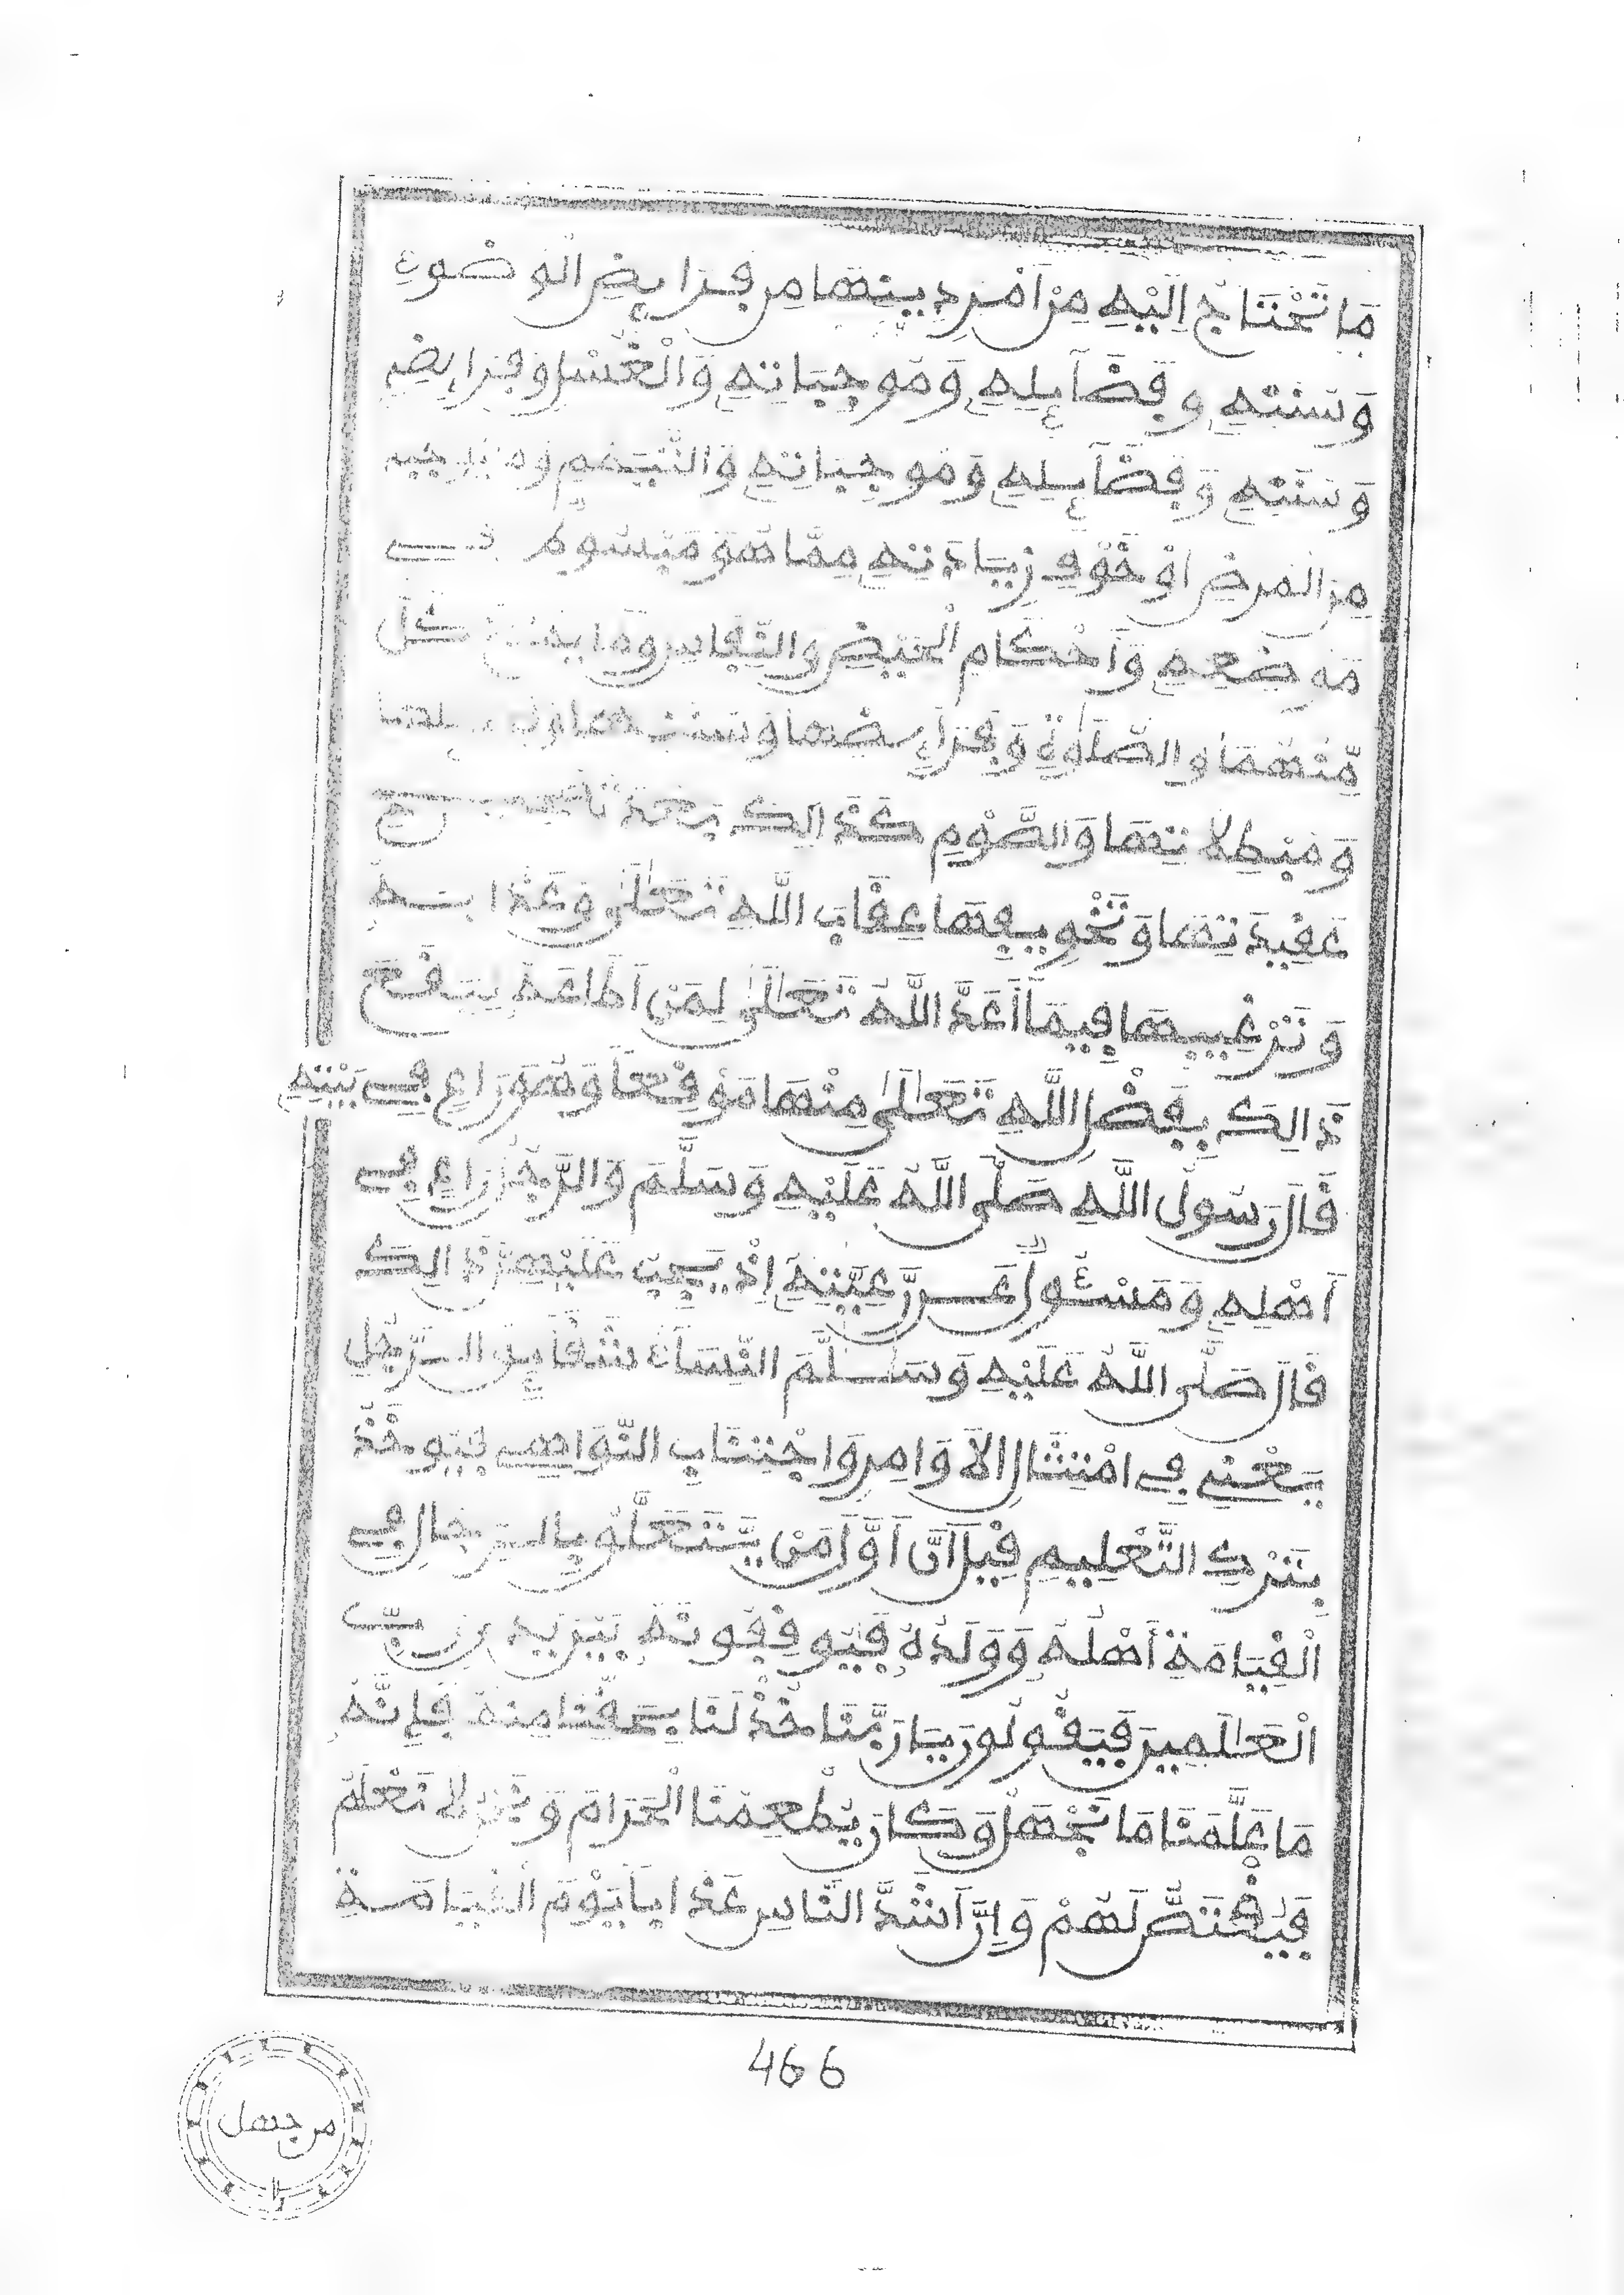 مَا تَحْتَاجُ إِلَيْهِ مِنْ أَمْرِ دِينِهَا مِن فَرَايِضِ الْوُضُوءِ
وَسُنَنِهِ وَفَضَآئِلِهِ وَمُوجِبَاتِهِ وَالْغُسْلِ وَفَرَايِضِهِ
وَسُنَنِهِ وَفَضَآئِلِهِ وَمُوجِبَاتِهِ وَالتَّيَمُّمِ
مِنَ الْمَرَضِ أَوْ خَوْفِ زِيَادَتِهِ مِمَّا هُوَ مَرْسُومٌ فِي
مَوْضِعِهِ وَأَحْكَامِ الْحَيْضِ وَالنِّفَاسِ وَمَا يَمْنَعُ كُلٌّ
مِّنْهُمَا وَالصَّلَوٰةِ وَفَرَآئِضِهَا وَسُنَنِهَا
وَمُبْطِلَاتِهَا وَالصَّوْمِ كَذَالِكَ بَعْدَ تَصْحِيحِ
عَقِيدَتِهَا وَتَخْوِيفِهَا عِقَابَ اللَّهِ تَعَالَىٰ وَعَذَابَهُ
وَتَرْغِيبِهَا فِيمَا أَعَدَّ اللَّهُ تَعَالَىٰ لِمَنْ أَطَاعَهُ يَقَعُ
ذَالِكَ بِفَضْلِ اللَّهِ تَعَالَىٰ مِنْهَا مَوْقِعاً وَهُوَ رَاعٍ فِي بَيْتِهِ
قَالَ رَسُولُ اللَّهِ صَلَّى اللَّهُ عَلَيْهِ وَسَلَّمَ وَالرَّجُلُ رَاعٍ فِي
أَهْلِهِ وَمَسْئُولٌ عَن رَّعِيَّتِهِ إِذْ يَجِبُ عَلَيْهِ ذَالِكَ
قَالَ صَلَّى اللَّهُ عَلَيْهِ وَسَلَّمَ النِّسَآءُ شَقَآئِقُ الرَّجُلِ
يَعْنِي فِي امْتِثَالِ الْأَوَامِرِ وَاجْتِنَابِ النَّوَاهِي فَيُوخَذُ
بِتَرْكِ التَّعْلِيمِ قِيلَ أَنَّ أَوَّلَ مَنْ يَّتَعَلَّقُ بِالرِّجَالِ فِي
الْقِيَامَةِ أَهْلُهُ وَوَلَدُهُ فَيُوقِفُونَهُ بَيْنَ يَدَيْ رَبِّ
الْعَالَمِينَ فَيَقُولُونَ يَا رَبَّنَا خُذْ لَنَا بِحَقِّنَا مِنْهُ فَإِنَّهُ
مَا عَلَّمَنَا مَا نَجْهَلُ وَكَانَ يُطْعِمُنَا الْحَرَامَ وَنَحْنُ لَا نَعْلَمُ
فَيُقْتَصُّ لَهُمْ وَإِنَّ أَشَدَّ النَّاسِ عَذَاباً يَوْمَ الْقِيَامَةِ
466
من جهل